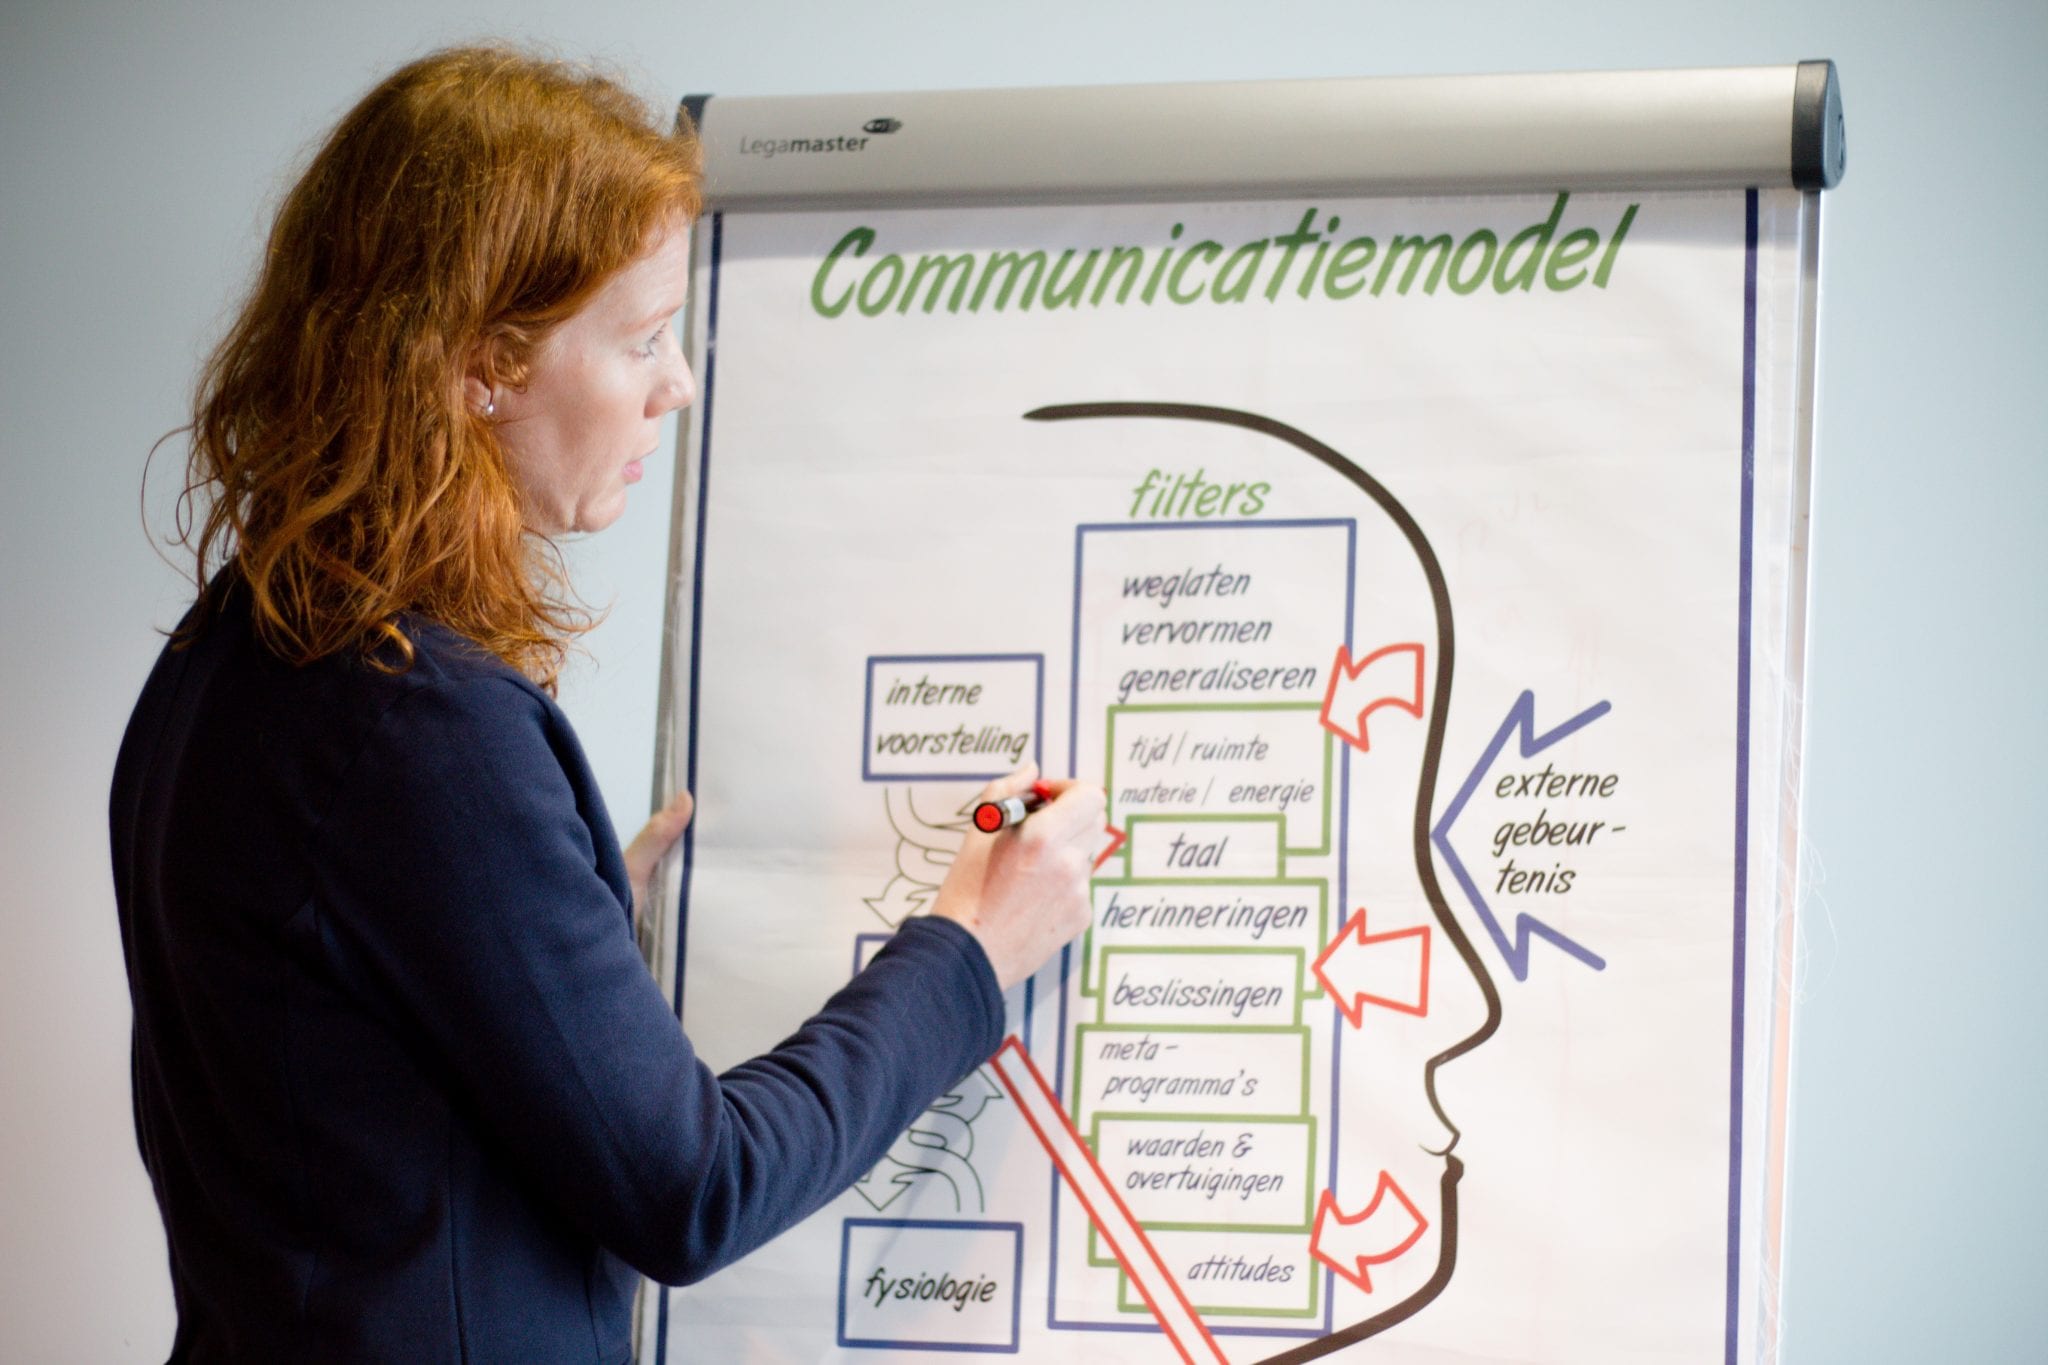 Legamaster
Communicatiemodel
filters
weglaten
vervormen
generaliseren
interne
voorstelling
tijd / ruimte
materie / energie
taal
herinneringen
beslissingen
meta-
programma's
waarden &
overtuigingen
attitudes
fysiologie
externe
gebeur-
tenis